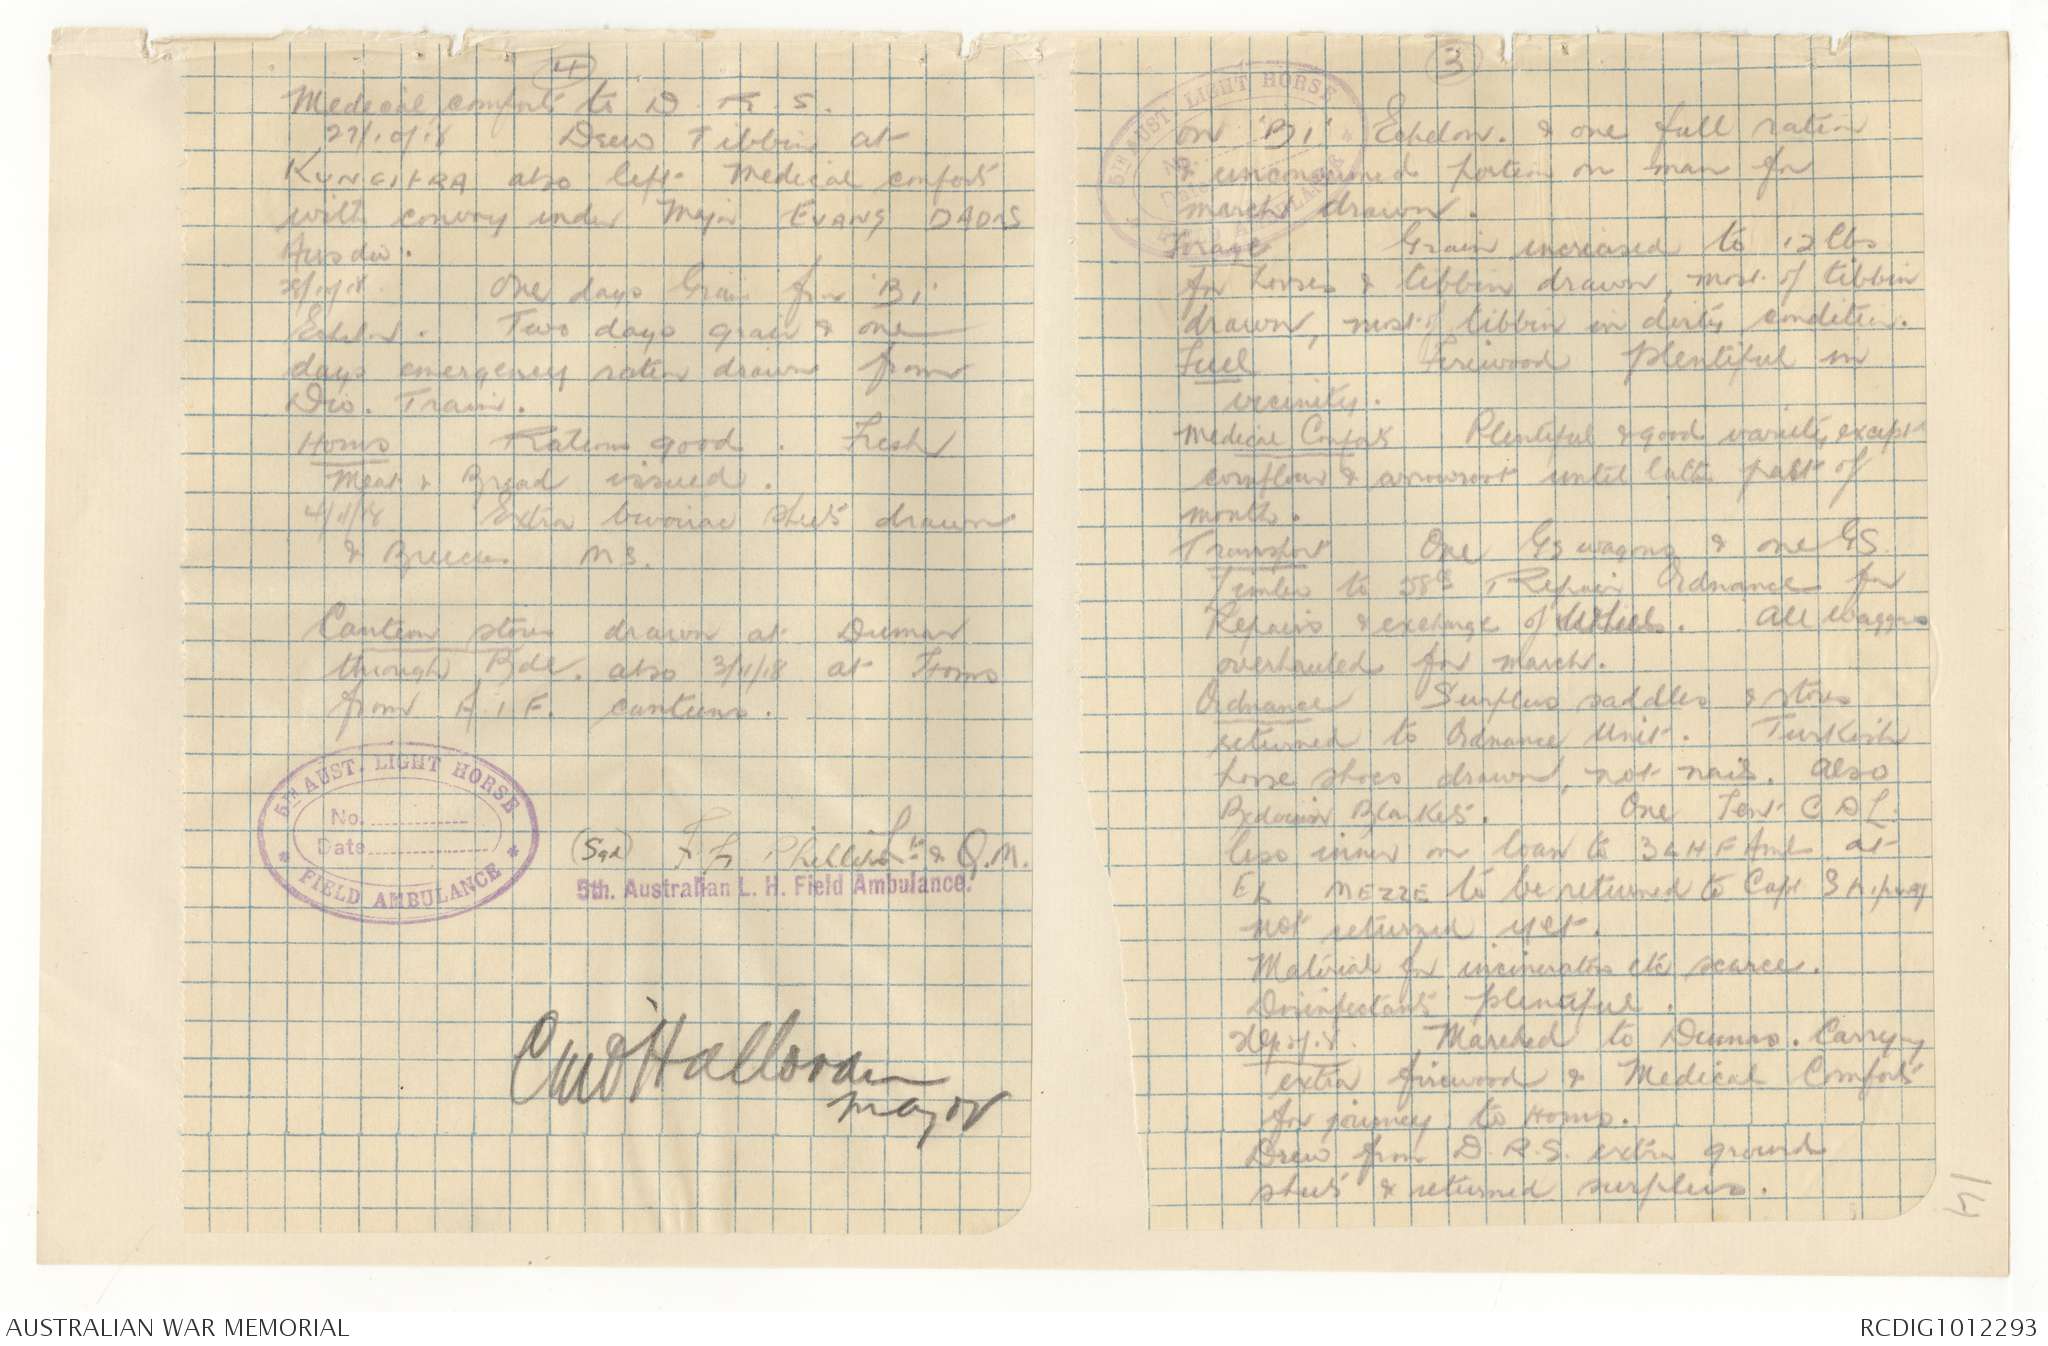 4
Medical comforts to D. R. S.
27/10/18 Drew Tibbin at
KUNEITRA also left Medical comforts
with convoy under Major EVANS DADMS
Ausdiv.
28/10/18. One days Grain from 'B1'
Echelon. Two days grain & one
days emergency ration drawn from
Div. Train.
Homs Rations good. Fresh
Meat & Bread issued.
4/11/18 Extra bivouac sheets drawn
& Breeches M S.
Canteen stores drawn at Dumar
through Bde. also 3/11/18 at Homs
from A.I.F. canteens.
5TH AUST. LIGHT HORSE
No.
Date
* FIELD AMBULANCE *
(Sgd) F G Lt & Q.M.
5th. Australian L. H. Field Ambulance.
CMO'Halloran
Major
3
5TH AUST LIGHT HORSE
on 'B1' Echelon. & one full ration
& unconsumed portion on man for
march drawn.
Forage Grain increased to 12 lbs
for horses & tibbin drawn, most of tibbin
drawn, most of tibbin in dirty condition.
Fuel Firewood plentiful in
vicinity.
Medical Comforts Plentiful & good variety, except
cornflour & arrowroot until latter part of
month.
Transport One GS wagon & one GS
Limber to Repair Ordnance for
Repairs & exchange of Wheels. All waggons
overhauled for march.
Ordnance Surplus saddles & stores
returned to Ordnance Unit. Turkish
horse shoes drawn, not nails. Also
Bedouin Blankets. One Tent C D L.
less inner on loan to 3 L H F Amb at
El MEZZE to be returned to Capt
not returned yet.
Material for incinerators etc scarce.
Disinfectants plentiful.
Marched to Dumar. Carrying
extra firewood & Medical Comforts
for journey to Homs.
Drew from D.R.S. extra ground
sheets & returned surplus.
14
AUSTRALIAN WAR MEMORIAL
RCDIG1012293